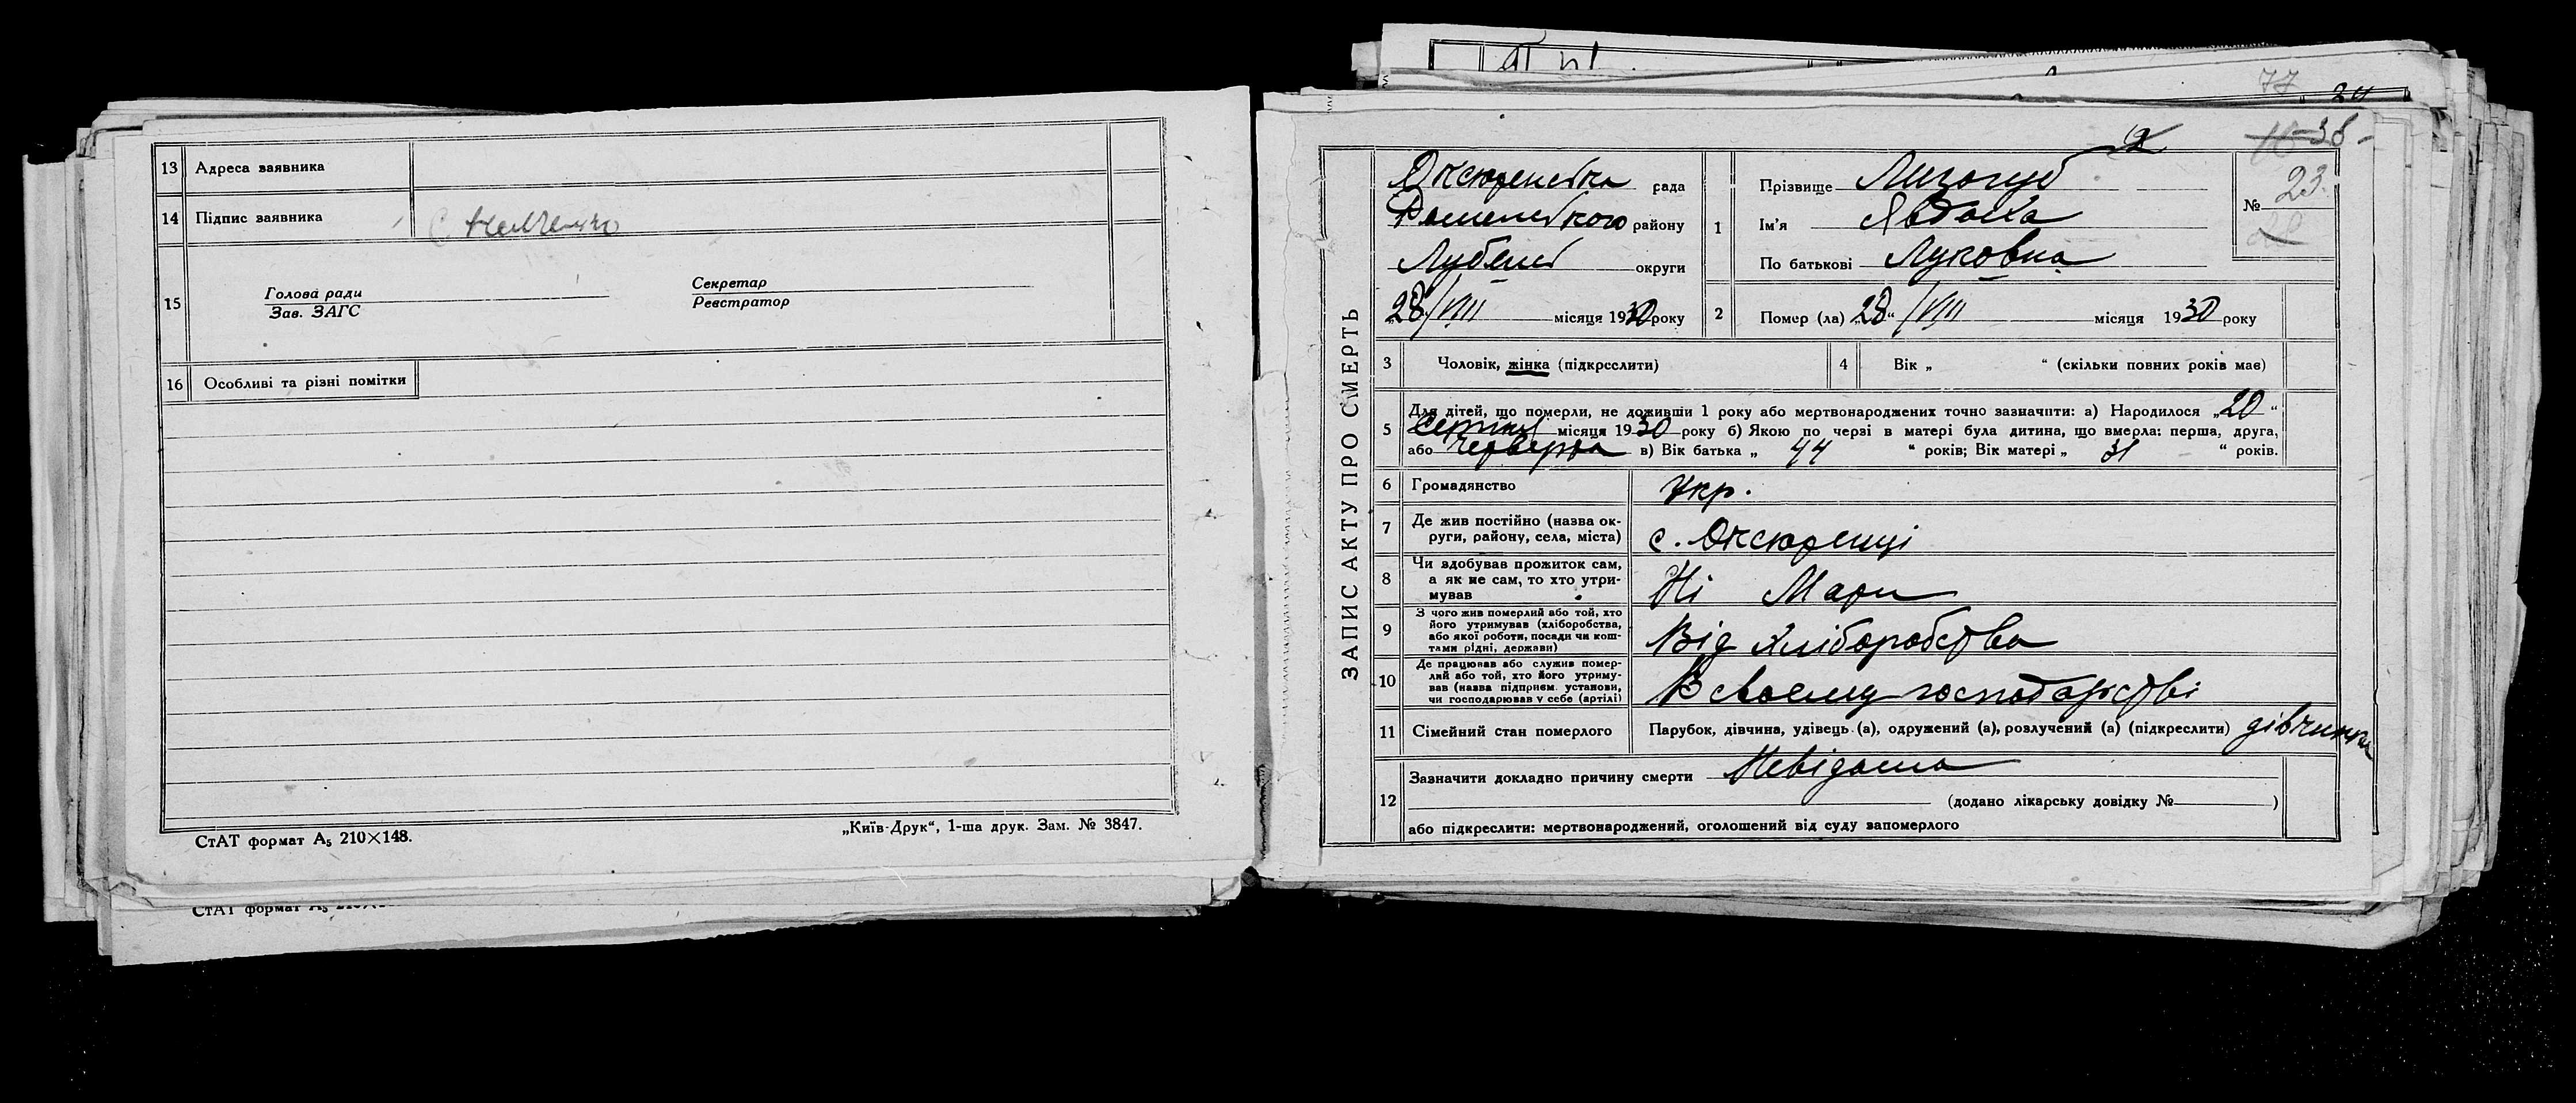 13 Адреса заявника
14 Підпис заявника
15 Голова ради
Зав. ЗАГС
Секретар
Реєстратор
16 Особливі та різні помітки
СтАТ формат А₅ 210×148.
„Київ-Друк“, 1-ша друк. Зам. № 3847.
СтАТ формат А₅
77
24
38
ЗАПИС АКТУ ПРО СМЕРТЬ
рада
Роменського району
Лубенс округи
28/VIII місяця 1930 року
1 Прізвище Лизогуб
Ім'я Явдоха
По батькові Луковна
№ 23.
2 Помер (ла) „28“ /VIII місяця 1930 року
3 Чоловік, жінка (підкреслити)
4 Вік „ “ (скільки повних років має)
5 Для дітей, що померли, не доживши 1 року або мертвонароджених точно зазначити: а) Народилося „20“
Серпня місяця 1930 року б) Якою по черзі в матері була дитина, що вмерла: перша, друга,
або четверта в) Вік батька „ 44 “ років; Вік матері „ 31 “ років.
6 Громадянство Укр.
7 Де жив постійно (назва ок-
руги, району, села, міста) с. Оксютенці
8 Чи здобував прожиток сам,
а як не сам, то хто утри-
мував Ні Мати
9 З чого жив померлий або той, хто
його утримував (хліборобства,
або якої роботи, посади чи кош-
тами рідні, держави) Від хліборобства
10 Де працював або служив помер-
лий або той, хто його утриму-
вав (назва підприєм. установи,
чи господарював у себе (артілі) В своєму господарстві
11 Сімейний стан померлого Парубок, дівчина, удівець (а), одружений (а), розлучений (а) (підкреслити) дівчинка
12 Зазначити докладно причину смерти Невідома
(додано лікарську довідку № )
або підкреслити: мертвонароджений, оголошений від суду запомерлого